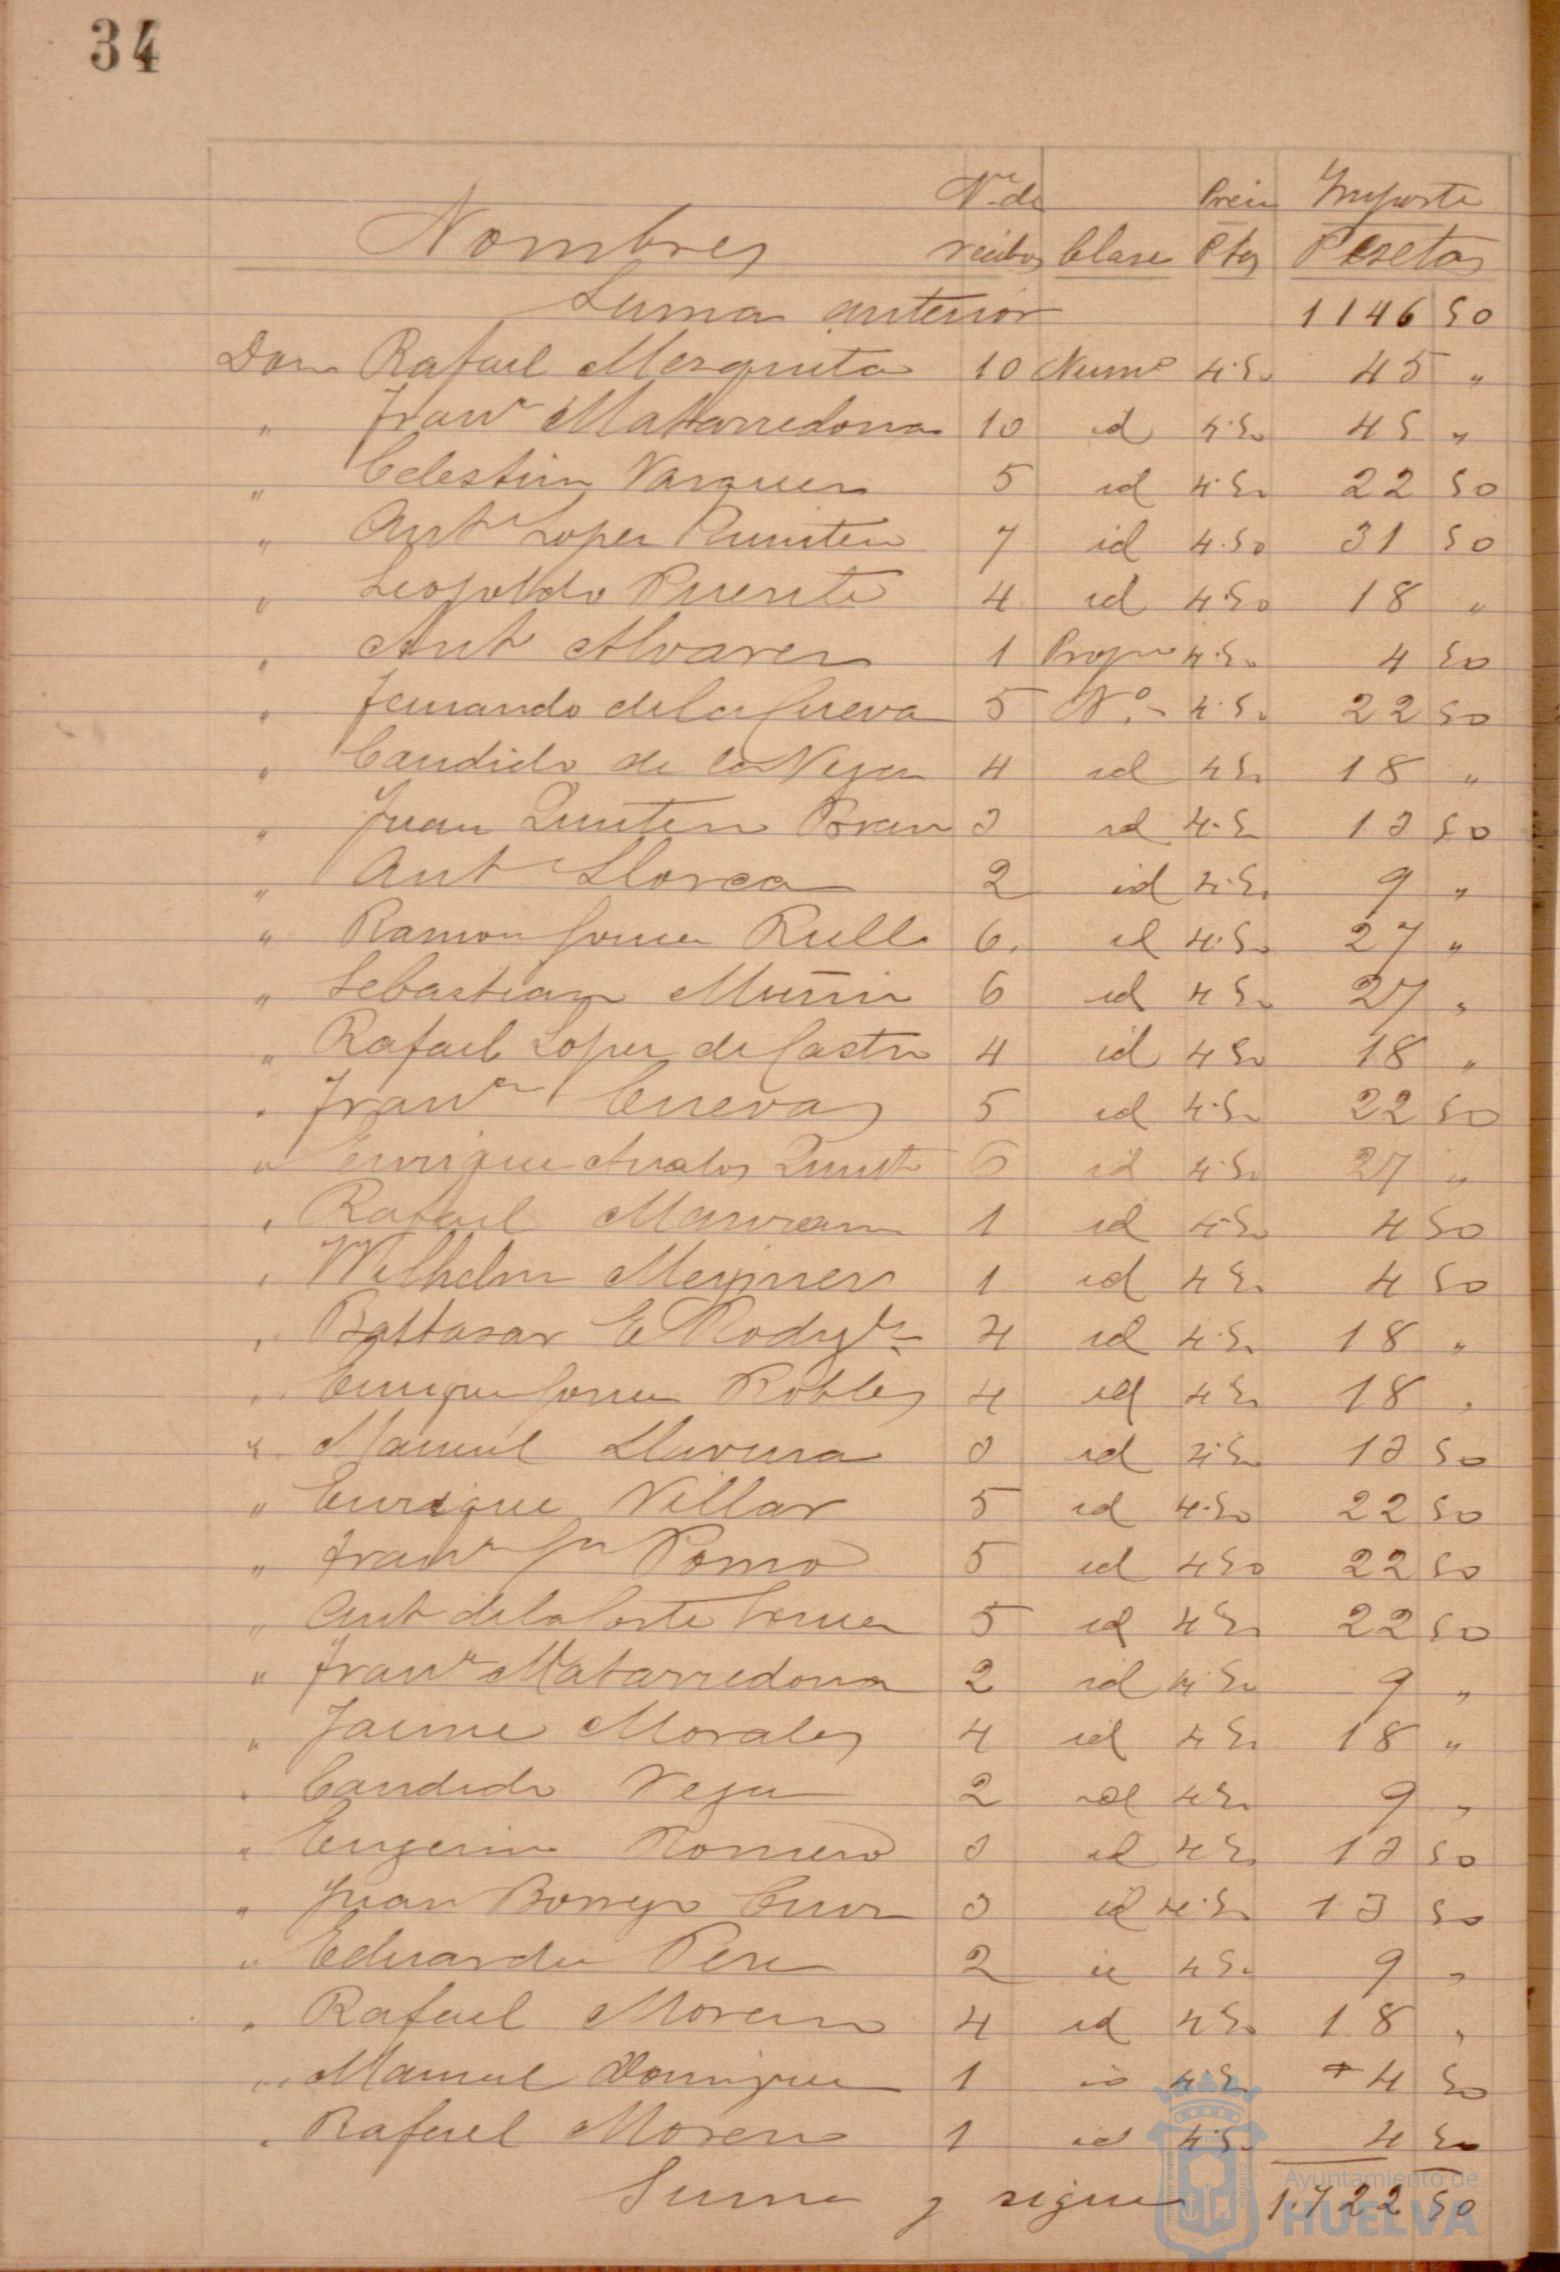 34
Nombres Nº de recibos Clase Precio Ptas Importe Pesetas
Suma anterior 1146 50
Don Rafael Mezquita 10 Numº 4.50 45 "
" Franco Matarredona 10 id 4.50 45 "
" Celestino Vazquez 5 id 4.50 22 50
" Antº Lopez Quintero 7 id 4.50 31 50
" Leopoldo Puente 4 id 4.50 18 "
" Antº Alvarez 1 4.50 4 50
" Fernando de la Cueva 5 Nº 4.50 22 50
" Candido de la Vega 4 id 4.50 18 "
" Juan Quintero 3 id 4.50 13 50
" Antº Llorca 2 id 4.50 9 "
" Ramon Gomez Rull 6 id 4.50 27 "
" Sebastian Muñiz 6 id 4.50 27 "
" Rafael Lopez de Castro 4 id 4.50 18 "
" Franco Cuevas 5 id 4.50 22 50
" Enrique Avalos 6 id 4.50 27 "
" Rafael 1 id 4.50 4 50
" Wilhelm 1 id 4.50 4 50
" Baltasar E Rodrgz 4 id 4.50 18 "
" Enrique Gomez Robles 4 id 4.50 18 "
" Manuel 3 id 4.50 13 50
" Enrique Villar 5 id 4.50 22 50
" Franco Gª Pomo 5 id 4.50 22 50
" Antº de la Corte Gomez 5 id 4.50 22 50
" Franco Matarredona 2 id 4.50 9 "
" Jaime Morales 4 id 4.50 18 "
" Candido Vega 2 id 4.50 9 "
" Eugenio Romero 3 id 4.50 13 50
" Juan Borrego 3 id 4.50 13 50
" Eduardo 2 id 4.50 9 "
" Rafael Moreno 4 id 4.50 18 "
" Manuel Dominguez 1 id 4.50 4 50
" Rafael Moreno 1 id 4.50 4 50
Suma y sigue 1.722 50
Ayuntamiento de
HUELVA